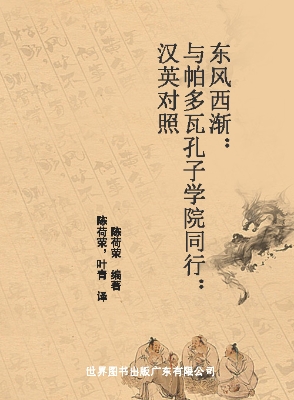 东风西渐：
与帕多瓦孔子学院同行：
汉英对照
陈荷荣 编著
陈荷荣，叶青 译
世界图书出版广东有限公司